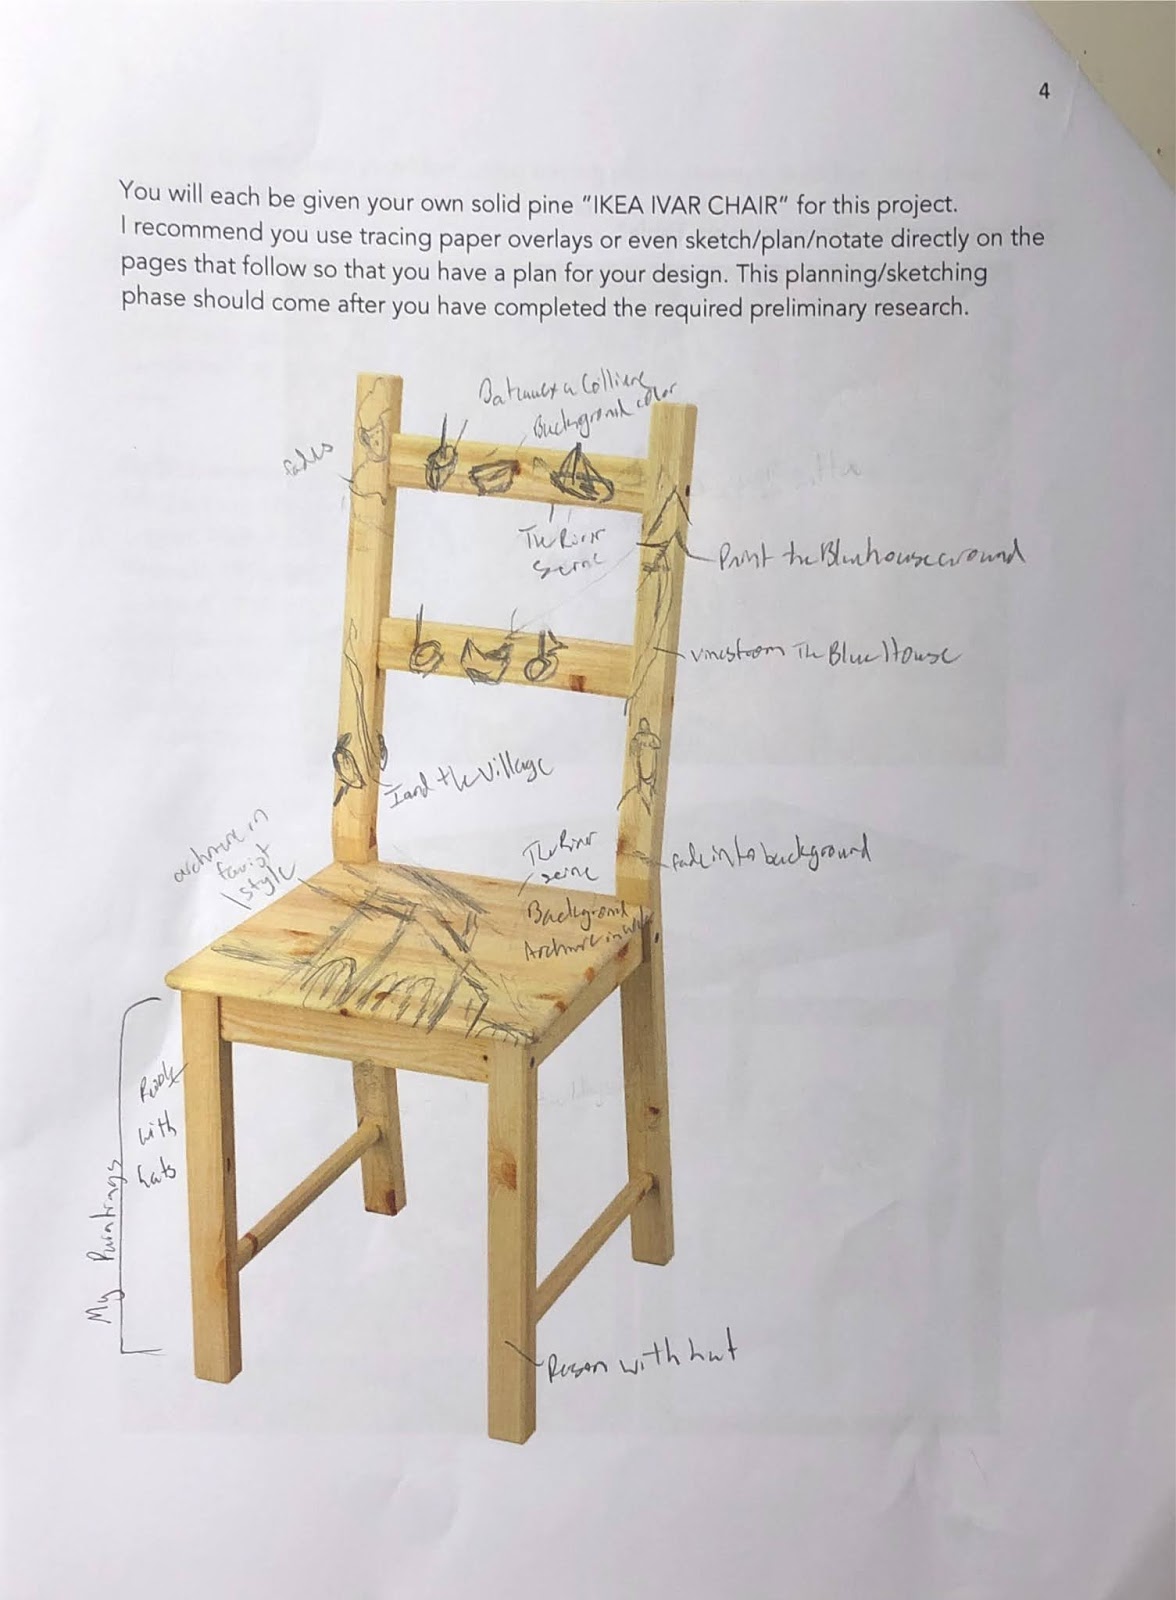 4
You will each be given your own solid pine “IKEA IVAR CHAIR” for this project.
I recommend you use tracing paper overlays or even sketch/plan/notate directly on the
pages that follow so that you have a plan for your design. This planning/sketching
phase should come after you have completed the required preliminary research.
Background color
fades
The River
Seine
Paint the Blue house around
vines from The Blue House
I and the Village
in
fauvist
style
The River
Seine
fade into background
Background
with
hats
My Paintings
Person with hat